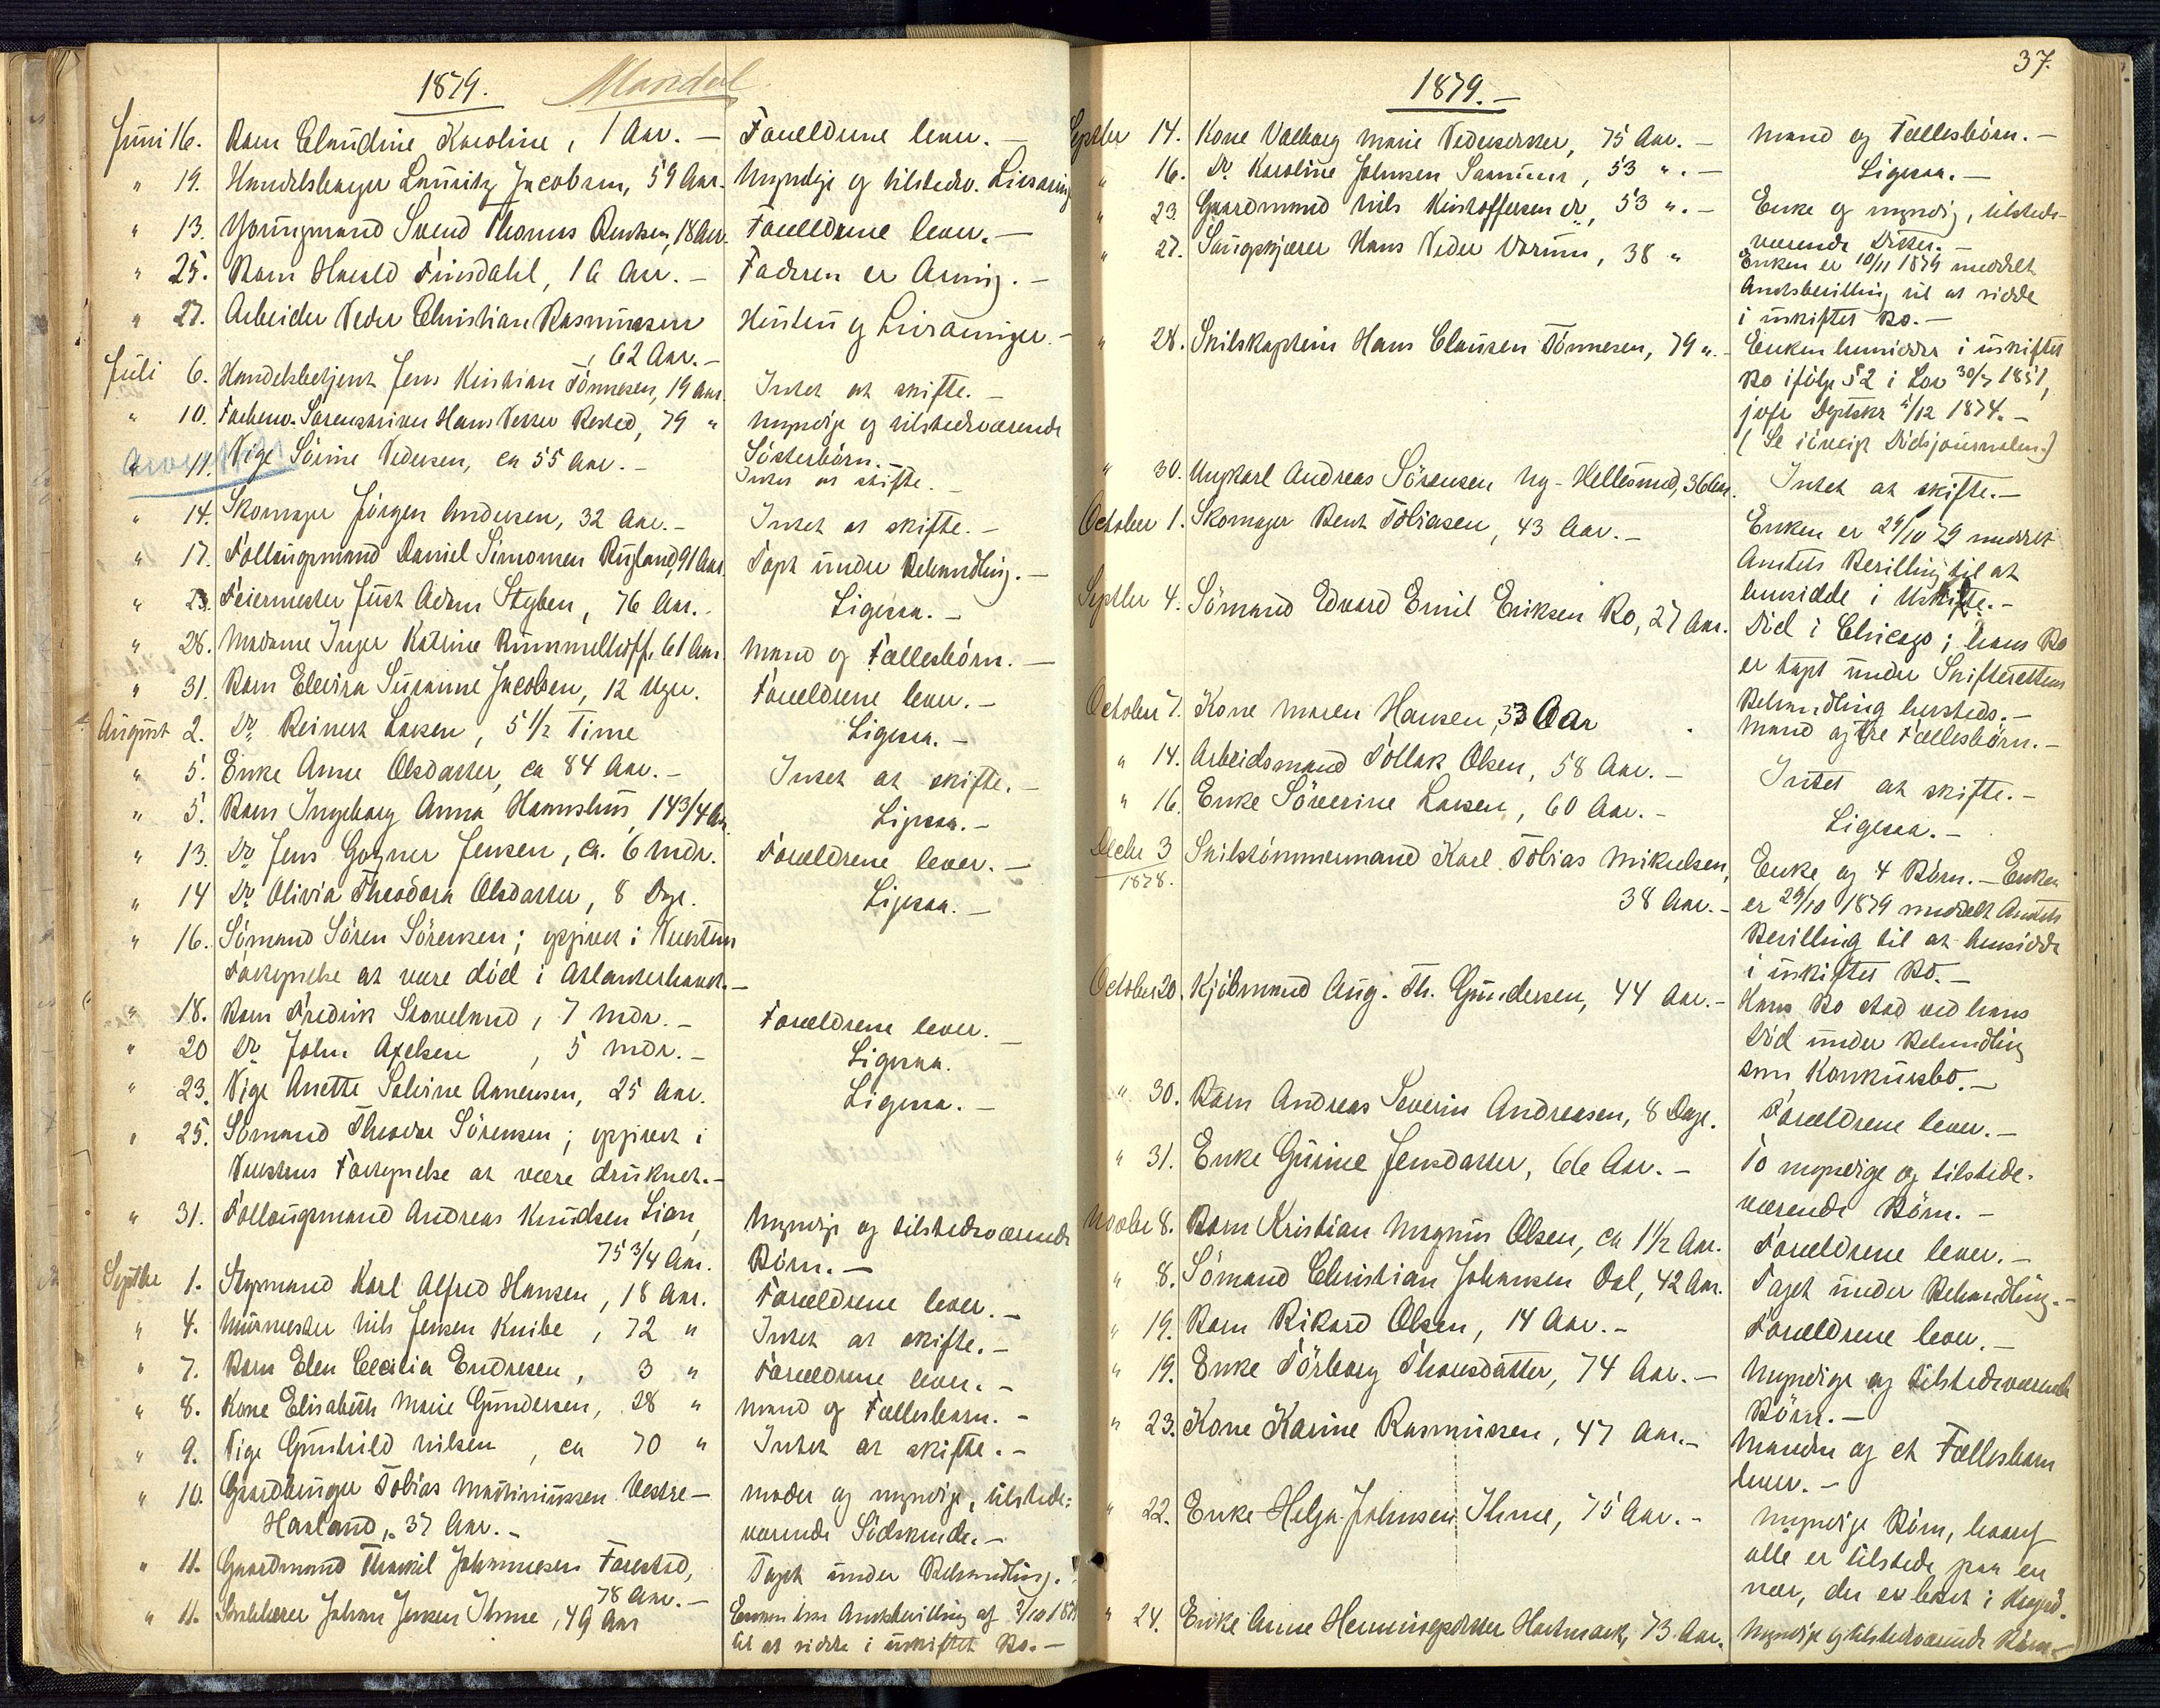 1879. Mandal
Juni 16. Barn Claudine Karoline, 1 Aar. — Forældrene lever. —
" 19. Handelsborger Lauritz Jacobsen, 59 Aar. Myndige og tilstedev. Livsarving
" 13. Youngmand Svend Thomas Bentsen, 18 Aar. Forældrene lever. —
" 25. Barn Harald Finsdahl, 16 Aar. — Faderen er Arving. —
" 27. Arbeider Peder Christian Rasmussen Hustru og Livsarvinger. —
, 62 Aar. —
Juli 6. Handelsbetjent Jens Kristian Tönnesen, 19 Aar. Intet at skifte. —
" 10. Forhenv. Sorenskriver Hans Petter Rested, 79 " Myndige og tilstedeværende
Søsterbörn. —
" 11. Pige Sörine Pedersen, ca 55 Aar. — Intet at skifte. —
" 14. Skomager Jörgen Andersen, 32 Aar. — Intet at skifte. —
" 17. Follaugsmand Daniel Simonsen Rugland, 91 Aar. Taget under Behandling. —
" 23. Feiermester Just Adam Styben, 76 Aar. Ligesaa. —
" 28. Madame Inger Katrine Rummelhoff, 61 Aar. Mand og Fællesbörn. —
" 31. Barn Elevira Susanne Jacobsen, 12 Uger. Forældrene lever. —
August 2. Do Reinert Larsen, 5 1/2 Time Ligesaa. —
" 5. Enke Anne Olsdatter, ca 84 Aar. — Intet at skifte. —
" 5. Barn Ingeborg Anna Hamshus, 14 3/4 Aar. Ligesaa. —
" 13. Do Jens Gogner Jensen, ca. 6 Mdr. Forældrene lever. —
" 14 Do Olivia Theodora Olsdatter, 8 Dge. Ligesaa. —
" 16. Sömand Sören Sörensen; opgivet i Præstens
Fortegnelse at være död i Atlanterhavet. —
" 18. Barn Fredrik Skoveland, 7 Mdr. — Forældrene lever. —
" 20 Do John Axelsen, 5 Mdr. — Ligesaa.
" 23. Pige Anette Salvine Aanensen, 25 Aar. Ligesaa. —
" 25. Sömand Theodor Sörensen; opgivet i
Præstens Fortegnelse at være druknet. —
" 31. Follaugsmand Andreas Knudsen Lian, Myndige og tilstedeværende
75 3/4 Aar. Börn. —
Septbr 1. Styrmand Karl Alfred Hansen, 18 Aar. Forældrene lever. —
" 4. Muurmester Nils Jensen Knibe, 72 " Intet at skifte. —
" 7. Barn Elen Cecilia Endresen, 3 " Forældrene lever. —
" 8. Kone Elisabeth Marie Gundersen, 28 " Mand og Fællesbarn. —
" 9. Pige Gunhild Nilsen, ca 70 " Intet at skifte. —
" 10. Gaardbruger Tobias Martiniussen Vestre- Moder og myndige, tilstede-
Harland, 37 Aar. — værende Södskende. —
" 11. Gaardmand Thorkil Johannesen Farestad, Taget under Behandling.
78 Aar. —
" 11. Johan Jensen Ihme, 49 Aar Enken har Amtsbevilling af 3/10 1879
til at sidde i uskiftet Bo. —
37.
1879. —
Septbr 14. Kone Valborg Marie Pedersdatter, 75 Aar. — Mand og Fællesbörn. —
" 16. Do Karoline Johnsen Sanuum, 53 ". — Ligesaa. —
" 23. Gaardmand Nils Kristoffersen, 53 ". — Enke og myndig, tilstede-
værende Datter. —
" 27. Hans Peder Vorum, 38 " Enken er 10/11 1879 meddelt
Amtsbevilling til at sidde
i uskiftet Bo. —
" 28. Skibskaptein Hans Clausen Tönnesen, 79 ". — Enken hensidder i uskiftet
Bo ifölge § 2 i Lov 30/7 1851,
jvfr Deptskr 5/12 1874. —
(Se iövrigt Dödsjournalen.)
" 30. Ungkarl Andreas Sörensen Ny-Hellesund, 36 Aar. Intet at skifte. —
October 1. Skomager Bent Tobiasen, 43 Aar. — Enken er 29/10 79 meddelt
Amtets Bevilling til at
hensidde i Uskifte. —
Septbr 4. Sömand Edvard Emil Eriksen Ro, 27 Aar. Död i Chicago; hans Bo
er tagt under Skifterettens
Behandling hersteds. —
October 7. Kone Maren Hansen, 33 Aar Mand og tre Fællesbörn. —
" 14. Arbeidsmand Tollak Olsen, 58 Aar. — Intet at skifte. —
" 16. Enke Söverine Larsen, 60 Aar. — Ligesaa. —
Decbr 3 Skibstömmermand Karl Tobias Mikelsen, Enke og 4 Börn. — Enken
1878. 38 Aar. — er 29/10 1879 meddelt Amtets
Bevilling til at hensidde
i uskiftet Bo. —
October 20. Kjöbmand Aug. Th. Gundersen, 44 Aar. — Hans Bo stod ved hans
Död under Behandling
som Konkursbo. —
" 30. Barn Andreas Severin Andreasen, 8 Dage. Forældrene lever. —
" 31. Enke Gurine Jensdatter, 66 Aar. — To myndige og tilstede-
værende Börn. —
Novbr 8. Barn Kristian Magnus Olsen, ca 1 1/2 Aar. Forældrene lever. —
" 8. Sömand Christian Johansen Dal, 42 Aar. Taget under Behandling. —
" 19. Barn Rikard Olsen, 14 Aar. — Forældrene lever. —
" 19. Enke Törborg Thorsdatter, 74 Aar. — Myndige og tilstedeværende
Börn. —
" 23. Kone Karine Rasmussen, 47 Aar. — Manden og et Fællesbarn
lever. —
" 22. Enke Helga Johnsen Ihme, 75 Aar. — Myndige Börn, hvoraf
alle er tilstede paa en
nær, der er
" 24. Enke Anne Henningsdatter Hartmark, 73 Aar. Myndige og tilstedeværende Börn. —